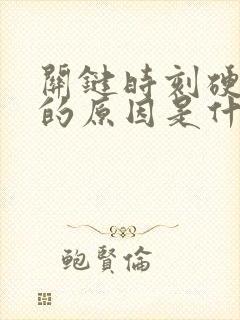 關鍵時刻硬
的原因是什
鮑賢倫